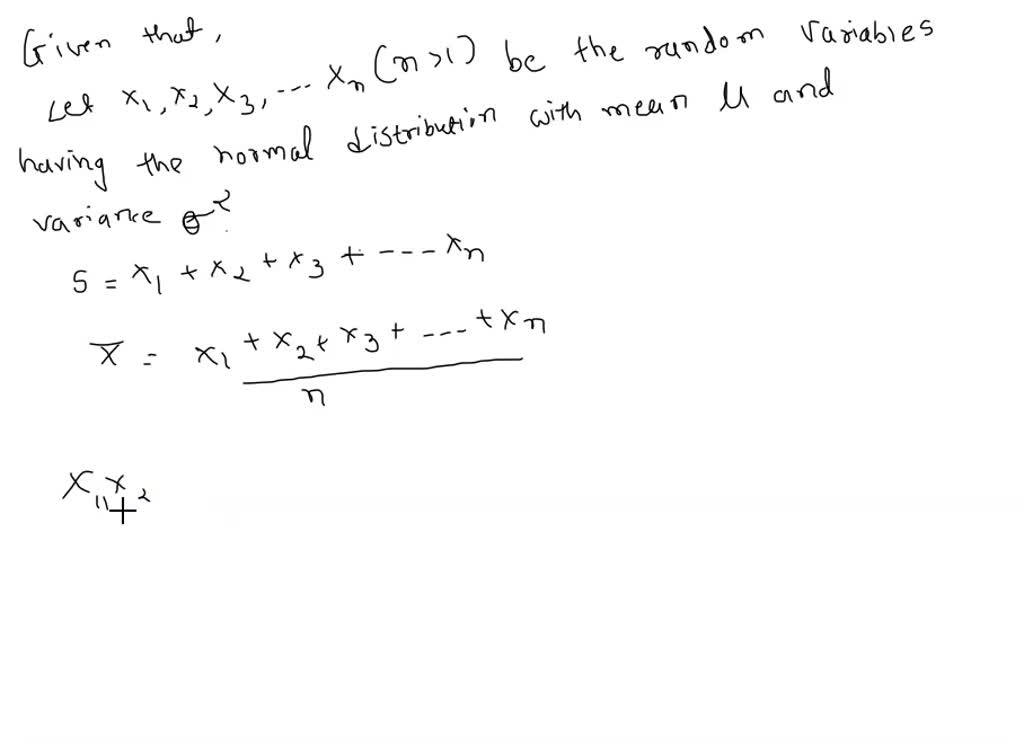 Given that,
Let x₁, x₂, x₃, ---- xₙ (n>1) be the random variables
having the normal distribution with mean μ and
variance σ².
S = x₁ + x₂ + x₃ + ---- xₙ
X̄ = x₁ + x₂ + x₃ + ---- + xₙ
n
X₁, x₂